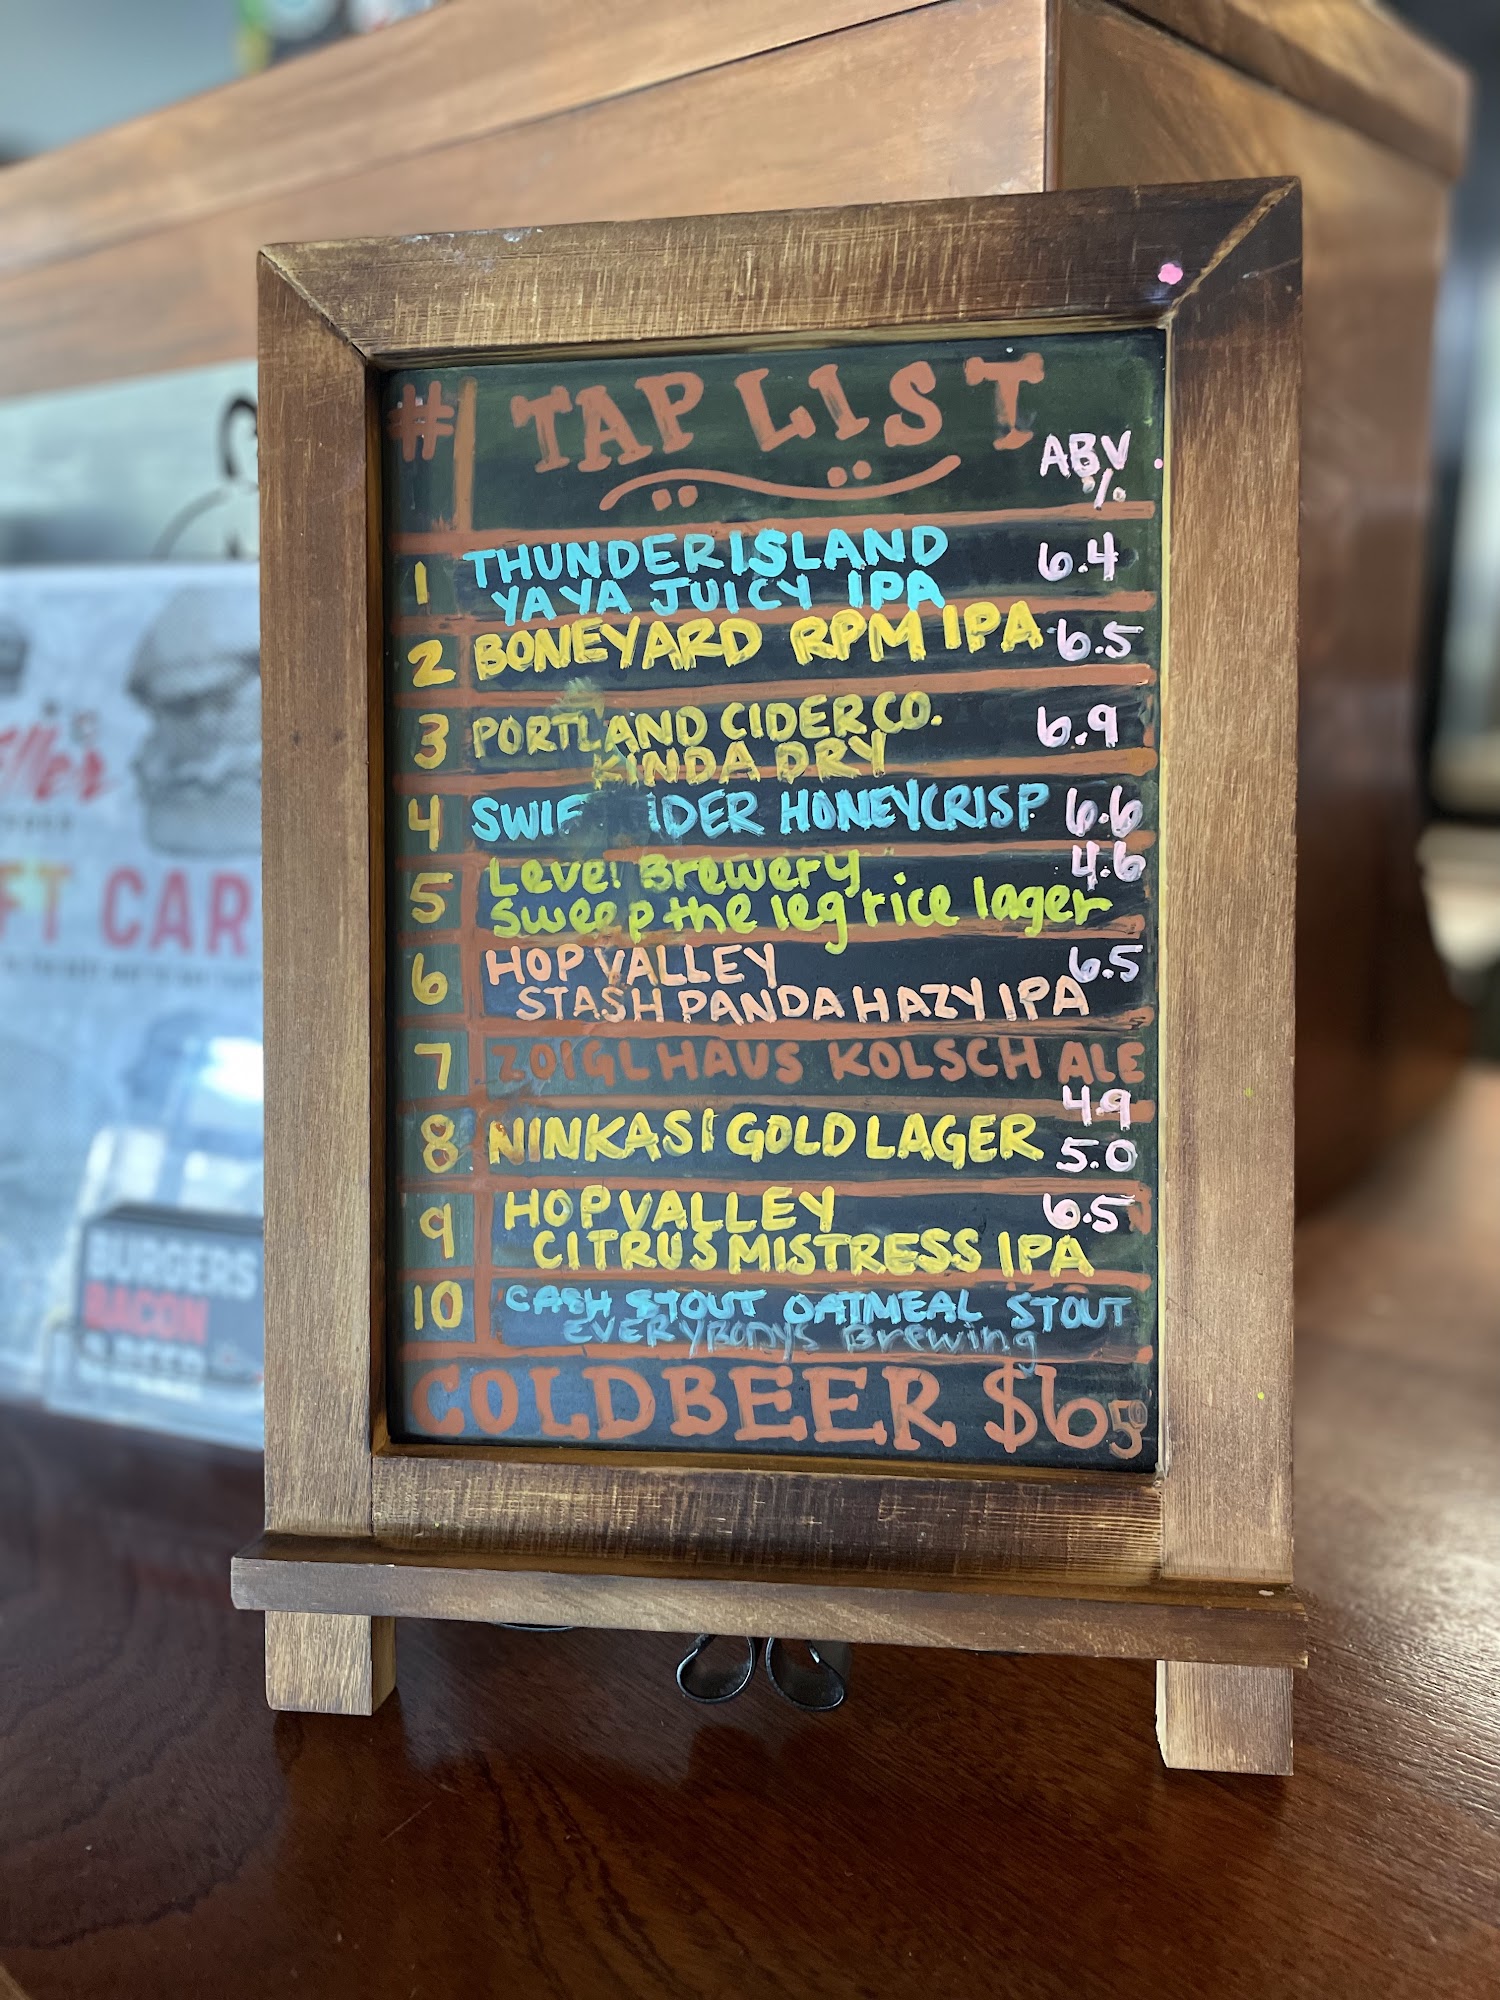 # TAP LIST
ABV
%
1 THUNDER ISLAND 6.4
YA YA JUICY IPA
2 BONEYARD RPM IPA 6.5
3 PORTLAND CIDER CO. 6.9
KINDA DRY
4 SWIF IDER HONEYCRISP 6.6
5 Level Brewery 4.6
Sweep the leg rice lager
6 HOP VALLEY 6.5
STASH PANDA HAZY IPA
7 ZOIGLHAUS KOLSCH ALE
4.9
8 NINKASI GOLD LAGER 5.0
9 HOP VALLEY 6.5
CITRUS MISTRESS IPA
10 CASH STOUT OATMEAL STOUT
EVERYBODYS Brewing
COLD BEER $6 50
FT CAR
BURGERS
BACON
& BEER